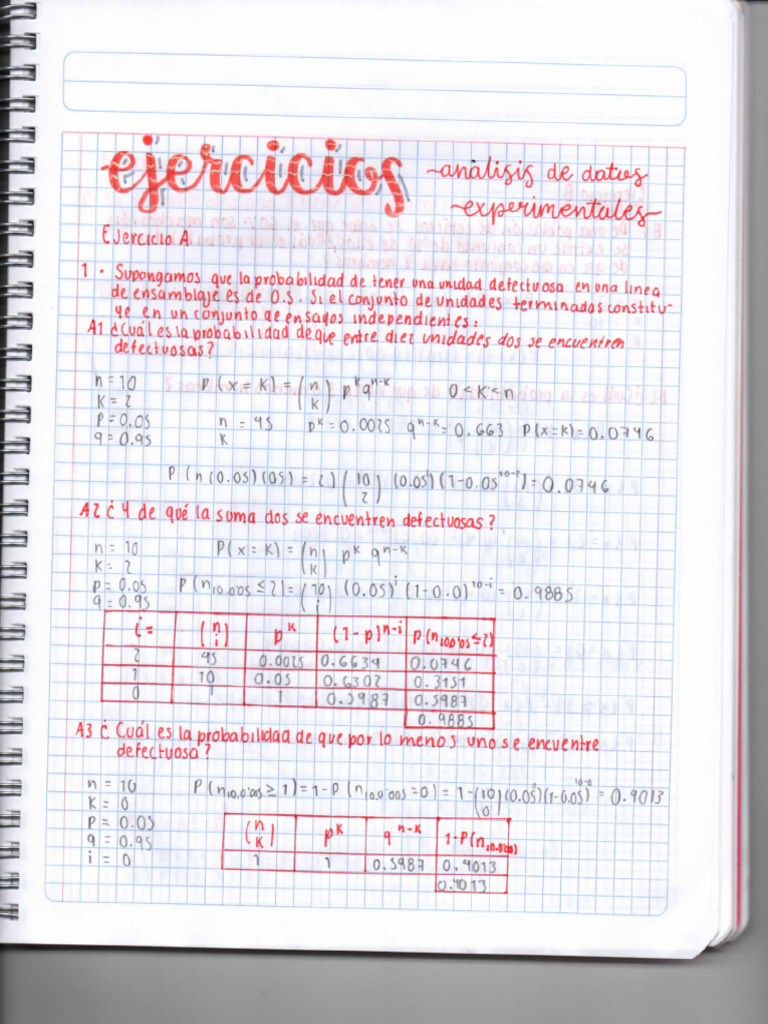 ejercicios
-análisis de datos
experimentales-
Ejercicio A
1. Supongamos que la probabilidad de tener una unidad defectuosa en una linea
de ensamblaje es de 0.5. Si el conjunto de unidades terminados constitu-
ye en un conjunto de ensayos independientes:
A1 ¿Cuál es la probabilidad de que entre diez unidades dos se encuentren
defectuosas?
n = 10 P(x = K) = (n K) p^K q^n-K 0 < K < n
K = 2
P = 0.05 n = 45 p^K = 0.0025 q^n-K = 0.663 P(x=K) = 0.0746
q = 0.95 K
P(n(0.05)(05) = 2) (10 2) (0.05)(1-0.05^10-2) = 0.0746
A2 ¿ Y de qué la suma dos se encuentren defectuosas?
n = 10 P(x = K) = (n K) p^K q^n-K
K = 2
p = 0.05 P(n10,0.05 ≤ 2) = (10 i) (0.05)^i (1-0.0)^10-i = 0.9885
q = 0.95
i = (n i) p^K (1-p)^n-i P(n10,0.05 ≤ 2)
2 45 0.0025 0.6634 0.0746
1 10 0.05 0.6302 0.3151
0 1 1 0.5987 0.5987
0.9885
A3 ¿ Cuál es la probabilidad de que por lo menos uno se encuentre
defectuosa?
n = 10 P(n10,0.05 ≥ 1) = 1-P(n10,0.05 = 0) = 1-(10 0)(0.05)^0(1-0.05)^10-0 = 0.4013
K = 0
P = 0.05
q = 0.95
i = 0
(n K) p^K q^n-K 1-P(n,10,0.00)
1 1 0.5987 0.4013
0.4013